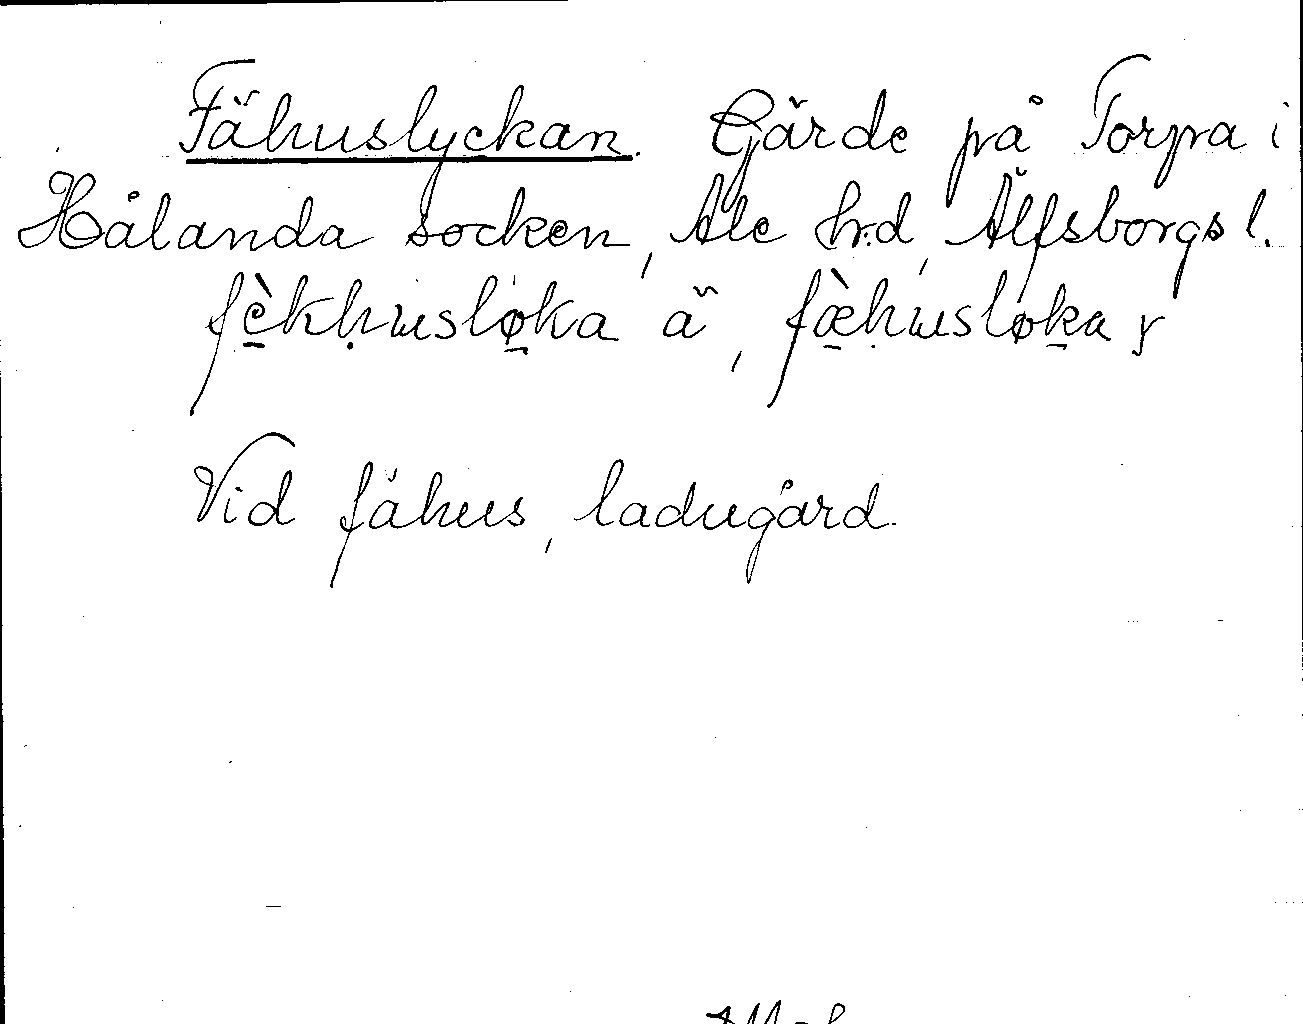 Fähuslyckan. Gärde på Torpa i
Hålanda socken, Ale hrd, Älfsborgs l.
fèkhusløka ä, fæ̀husløka y
Vid fähus, ladugård.